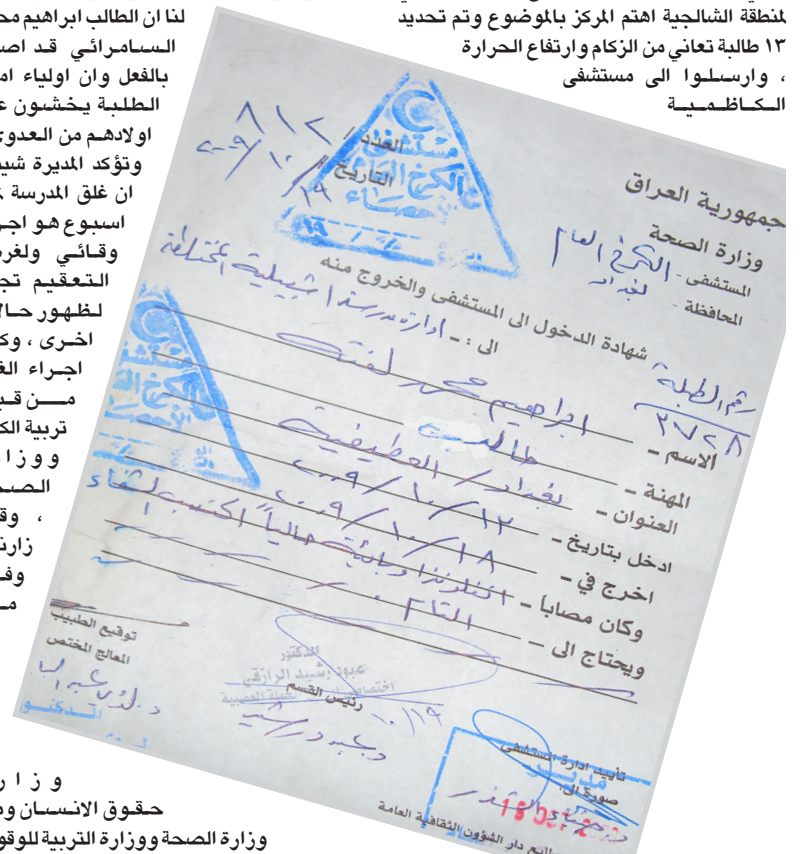 لمنطقة الشالجية اهتم المركز بالموضوع وتم تحديد
١٣ طالبة تعاني من الزكام وارتفاع الحرارة
، وارسلوا الى مستشفى
الكاظمية
لنا ان الطالب ابراهيم مح
السامرائي قد اص
بالفعل وان اولياء ام
الطلبة يخشون ع
اولادهم من العدوى
وتؤكد المديرة شي
ان غلق المدرسة
اسبوع هو اجر
وقائي ولغر
التعقيم تج
لظهور حال
اخرى ، وك
اجراء الف
من قب
تربية الك
ووزا
الصح
، وق
زارت
وف
م
وزار
حقوق الانسان و
وزارة الصحة ووزارة التربية للوقو
جمهورية العراق
وزارة الصحة
المستشفى - الكرخ العام
المحافظة - بغداد
العدد / ٨١٢
التاريخ ١٩/١٠/٢٠٠٩
مستشفى
الكرخ العام
الاحصاء
شهادة الدخول الى المستشفى والخروج منه
الى : - ادارة مدرسة اشبيلية المختلطة
رقم الطبلة
٣٧٢٨
الاسم - ابراهيم محمد لفته
المهنة - طالب
العنوان - بغداد / العطيفية
ادخل بتاريخ - ١٢/١٠/٢٠٠٩
اخرج في - ١٨/١٠/٢٠٠٩
وكان مصاباً - انفلونزا وبائية حالياً اكتسب الشفاء
ويحتاج الى - التام .
توقيع الطبيب
المعالج المختص
الدكتور
عبود رشيد الرازقي
رئيس القسم
١٠/١٩
تأييد ادارة المستشفى
مدير
صورة الى :
19 OCT
مطابع دار الشؤون الثقافية العامة